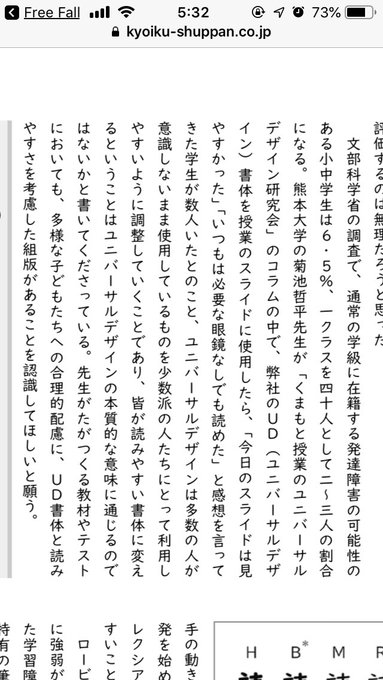 Free Fall 5:32 73%
kyoiku-shuppan.co.jp
評価するのは無理だろうと思った
文部科学省の調査で、通常の学級に在籍する発達障害の可能性の
ある小中学生は6・5%、一クラスを四十人として二〜三人の割合
になる。熊本大学の菊池哲平先生が「くまもと授業のユニバーサル
デザイン研究会」のコラムの中で、弊社のUD（ユニバーサルデザ
イン）書体を授業のスライドに使用したら、「今日のスライドは見
やすかった」「いつもは必要な眼鏡なしでも読めた」と感想を言って
きた学生が数人いたとのこと、ユニバーサルデザインは多数の人が
意識しないまま使用しているものを少数派の人たちにとって利用し
やすいように調整していくことであり、皆が読みやすい書体に変え
るということはユニバーサルデザインの本質的な意味に通じるので
はないかと書いてくださっている。先生がたがつくる教材やテスト
においても、多様な子どもたちへの合理的配慮に、UD書体と読み
やすさを考慮した組版があることを認識してほしいと願う。
H B* M R
手の動き
発を始め
レクシア
すいこと
ロービ
に強弱が
た学習障
特有の筆